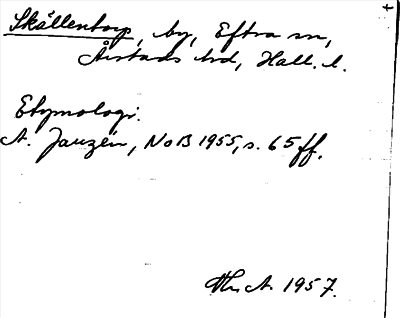 Skällentorp, by, Eftra sn,
Årstads hd, Hall. l.
Etymologi.
A. Janzén, NoB 1955, s. 65 ff.
A. 1957.